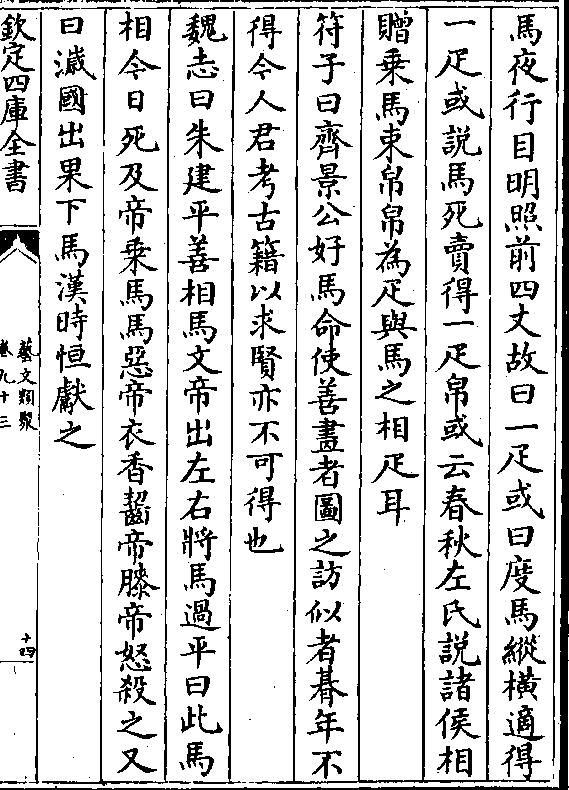 馬夜行目明照前四丈故曰一疋或曰度馬縱橫適得
一疋或説馬死賣得一疋帛或云春秋左氏説諸侯相
贈乗馬束帛帛為疋與馬之相疋耳
符子曰齊景公好馬命使善畫者圖之訪似者朞年不
得今人君考古籍以求賢亦不可得也
魏志曰朱建平善相馬文帝出左右將馬過平曰此馬
相今日死及帝乗馬馬惡帝衣香齧帝膝帝怒殺之又
曰濊國出果下馬漢時恒獻之
欽定四庫全書
藝文類聚
卷九十三
十四